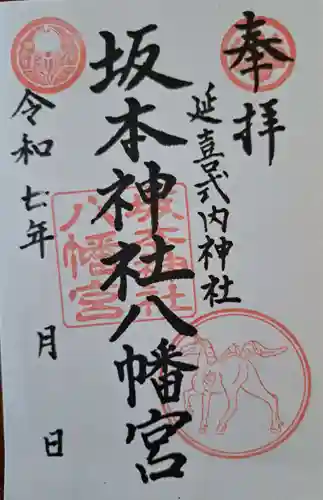 奉拝
延喜式内神社
坂本神社八幡宮
令和七年
月
日
坂本神社
八幡宮